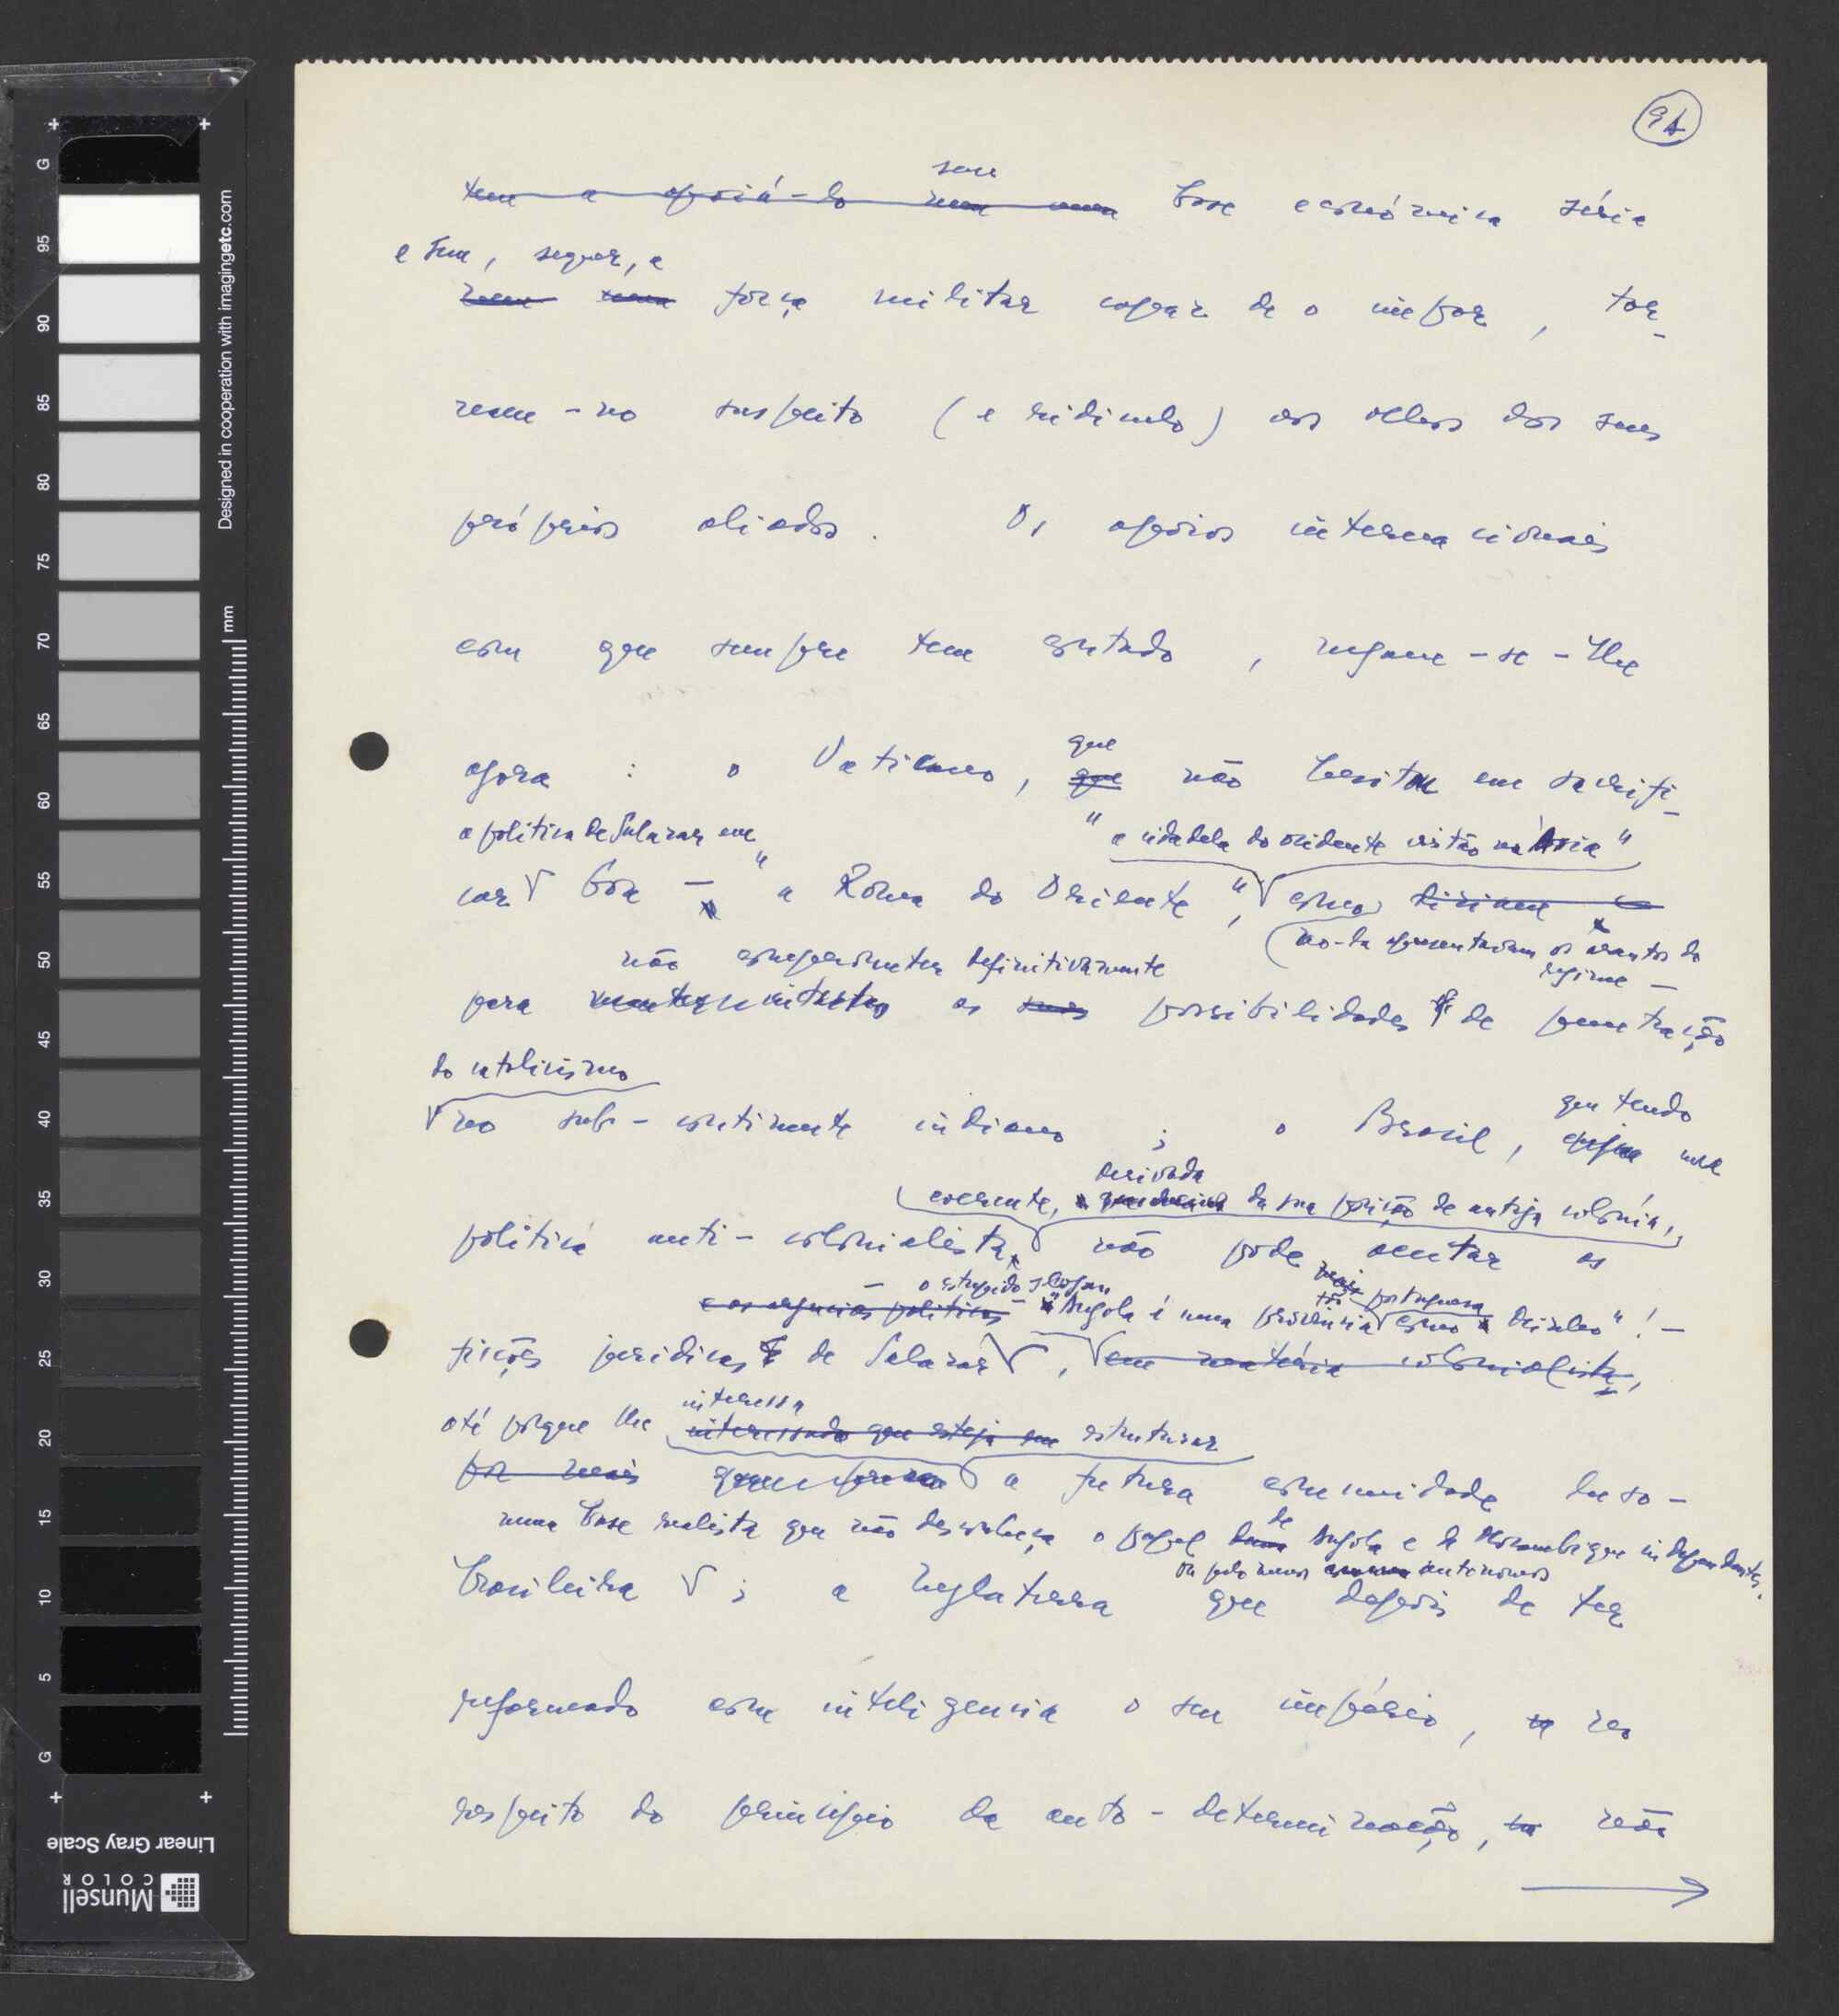 9A
sem
tem a apoiá-lo nem uma base económica séria
e sem, sequer, a
nem uma força militar capaz de o impor, tor-
nam-no suspeito (e ridículo) aos olhos dos seus
próprios aliados. Os apoios internacionais
com que sempre tem contado, negam-se-lhe
agora : o Vaticano, que não hesita em sacrifi-
que
a política de Salazar em "a cidadela do ocidente cristão na Ásia"
car Goa — "a Roma do Oriente", como diziam
no-la apresentavam os arautos do
regime —
não comprometer definitivamente
para as suas possibilidades de penetração
do catolicismo
no sub-continente indiano ; o Brasil, cuja uma
que tendo
derivada
coerente, da sua posição de antiga colónia,
política anti-colonialista, não pode aceitar as
— o estupido slogan
mais portuguesa
tão
e os argucias políticas — "Angola é uma província como o Minho"! —
ficções jurídicas de Salazar, em matéria colonialista,
interessa
até porque lhe interessado que esteja em estruturar
por mais que a futura comunidade luso-
numa base realista que não desconheça o papel de Angola e de Moçambique independentes,
ou pelo menos autonomos
brasileira ; a Inglaterra que depois de ter
reformado com inteligencia o seu império, no
respeito do princípio da auto-determinação, não
Designed in cooperation with imagingetc.com
mm
G 95 90 85 80 75 70 65 60 55 50 45 40 35 30 25 20 15 10 5 G
Linear Gray Scale
Munsell
COLOR